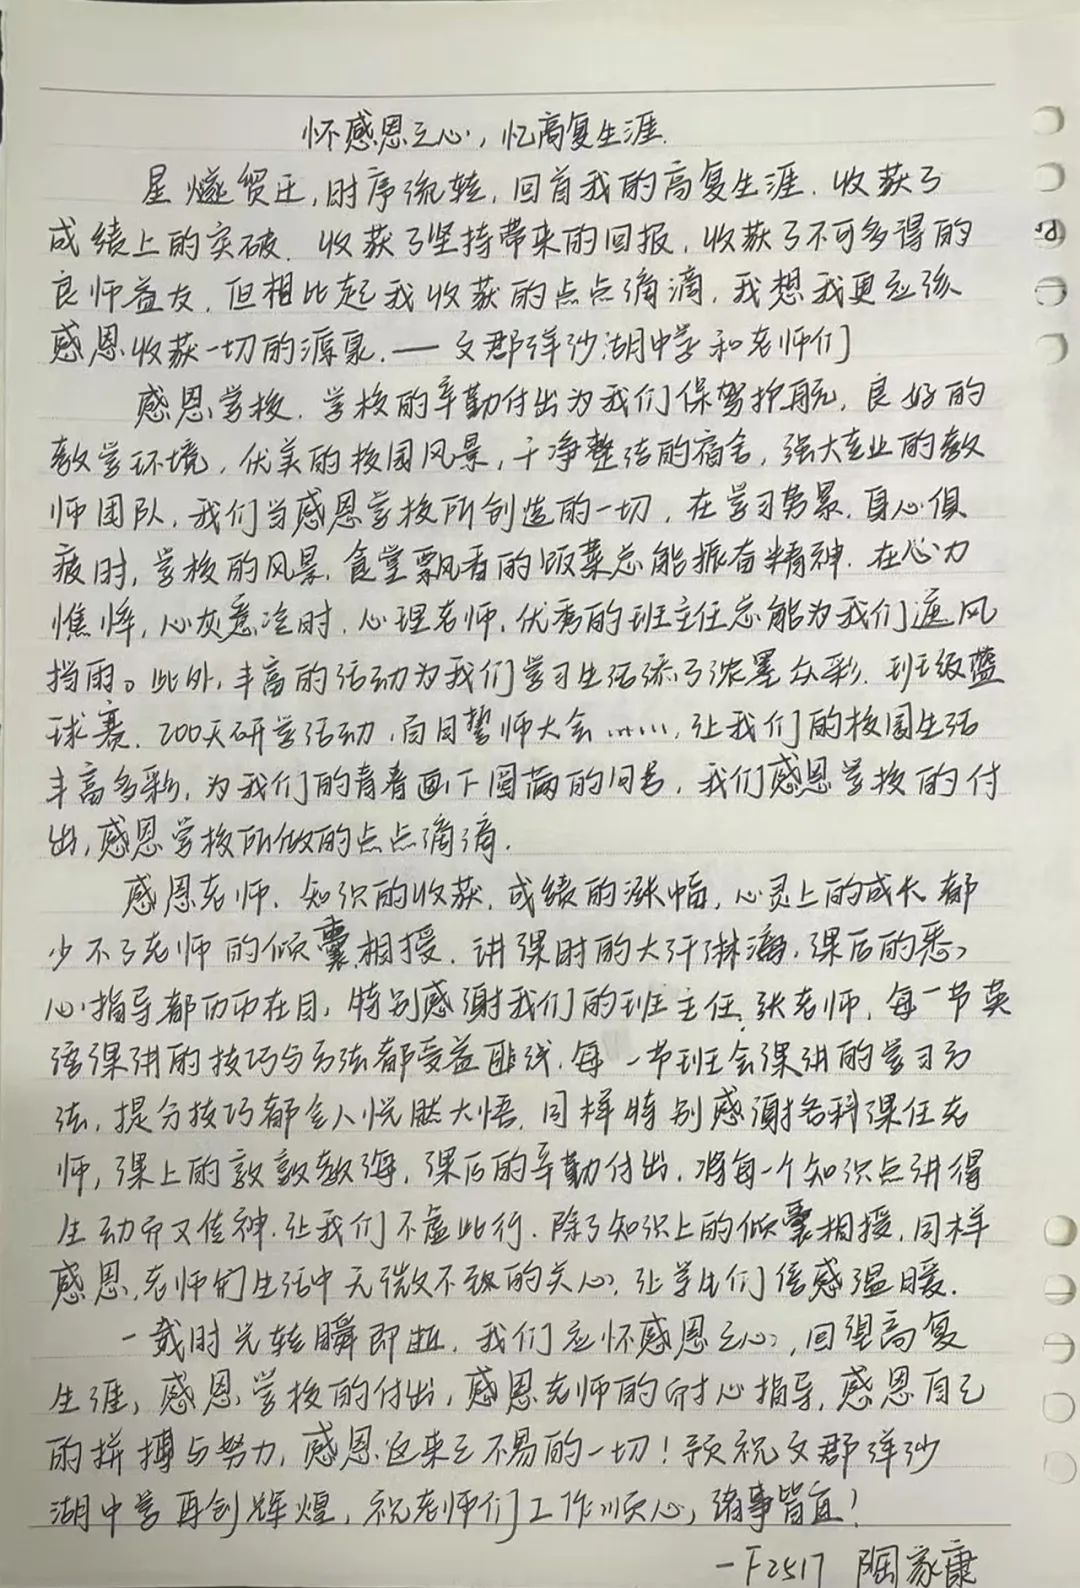 怀感恩之心，忆高复生涯.
星燧贸迁，时序流转，回首我的高复生涯.收获了
成绩上的突破.收获了坚持带来的回报，收获了不可多得的
良师益友.但相比起我收获的点点滴滴，我想我更应该
感恩收获一切的源泉.——文郡洋沙湖中学和老师们
感恩学校.学校的辛勤付出为我们保驾护航，良好的
教学环境，优美的校园风景，干净整洁的宿舍，强大专业的教
师团队，我们当感恩学校所创造的一切，在学习劳累.身心俱
疲时，学校的风景.食堂飘香的饭菜总能振奋精神.在心力
憔悴，心灰意冷时.心理老师，优秀的班主任总能为我们遮风
挡雨。此外，丰富的活动为我们学习生活添了浓墨众彩.班级篮
球赛.200天研学活动，百日誓师大会……，让我们的校园生活
丰富多彩，为我们的青春画下圆满的问号，我们感恩学校的付
出，感恩学校所做的点点滴滴.
感恩老师.知识的收获，成绩的涨幅，心灵上的成长都
少不了老师的倾囊相授.讲课时的大汗淋漓，课后的悉
心指导都历历在目，特别感谢我们的班主任张老师，每一节英
语课讲的技巧与方法都受益匪浅.每一节班会课讲的学习方
法，提分技巧都令人恍然大悟.同样特别感谢各科课任老
师，课上的敦敦教诲，课后的辛勤付出，将每一个知识点讲得
生动而又传神.让我们不虚此行.除了知识上的倾囊相授，同样
感恩，老师们生活中无微不致的关心，让学生们倍感温暖.
一载时光转瞬即逝，我们应怀感恩之心，回望高复
生涯，感恩学校的付出，感恩老师的耐心指导，感恩自己
的拼搏与努力，感恩这来之不易的一切！预祝文郡洋沙
湖中学再创辉煌，祝老师们工作顺心，诸事皆宜！
—F2517 陶家康